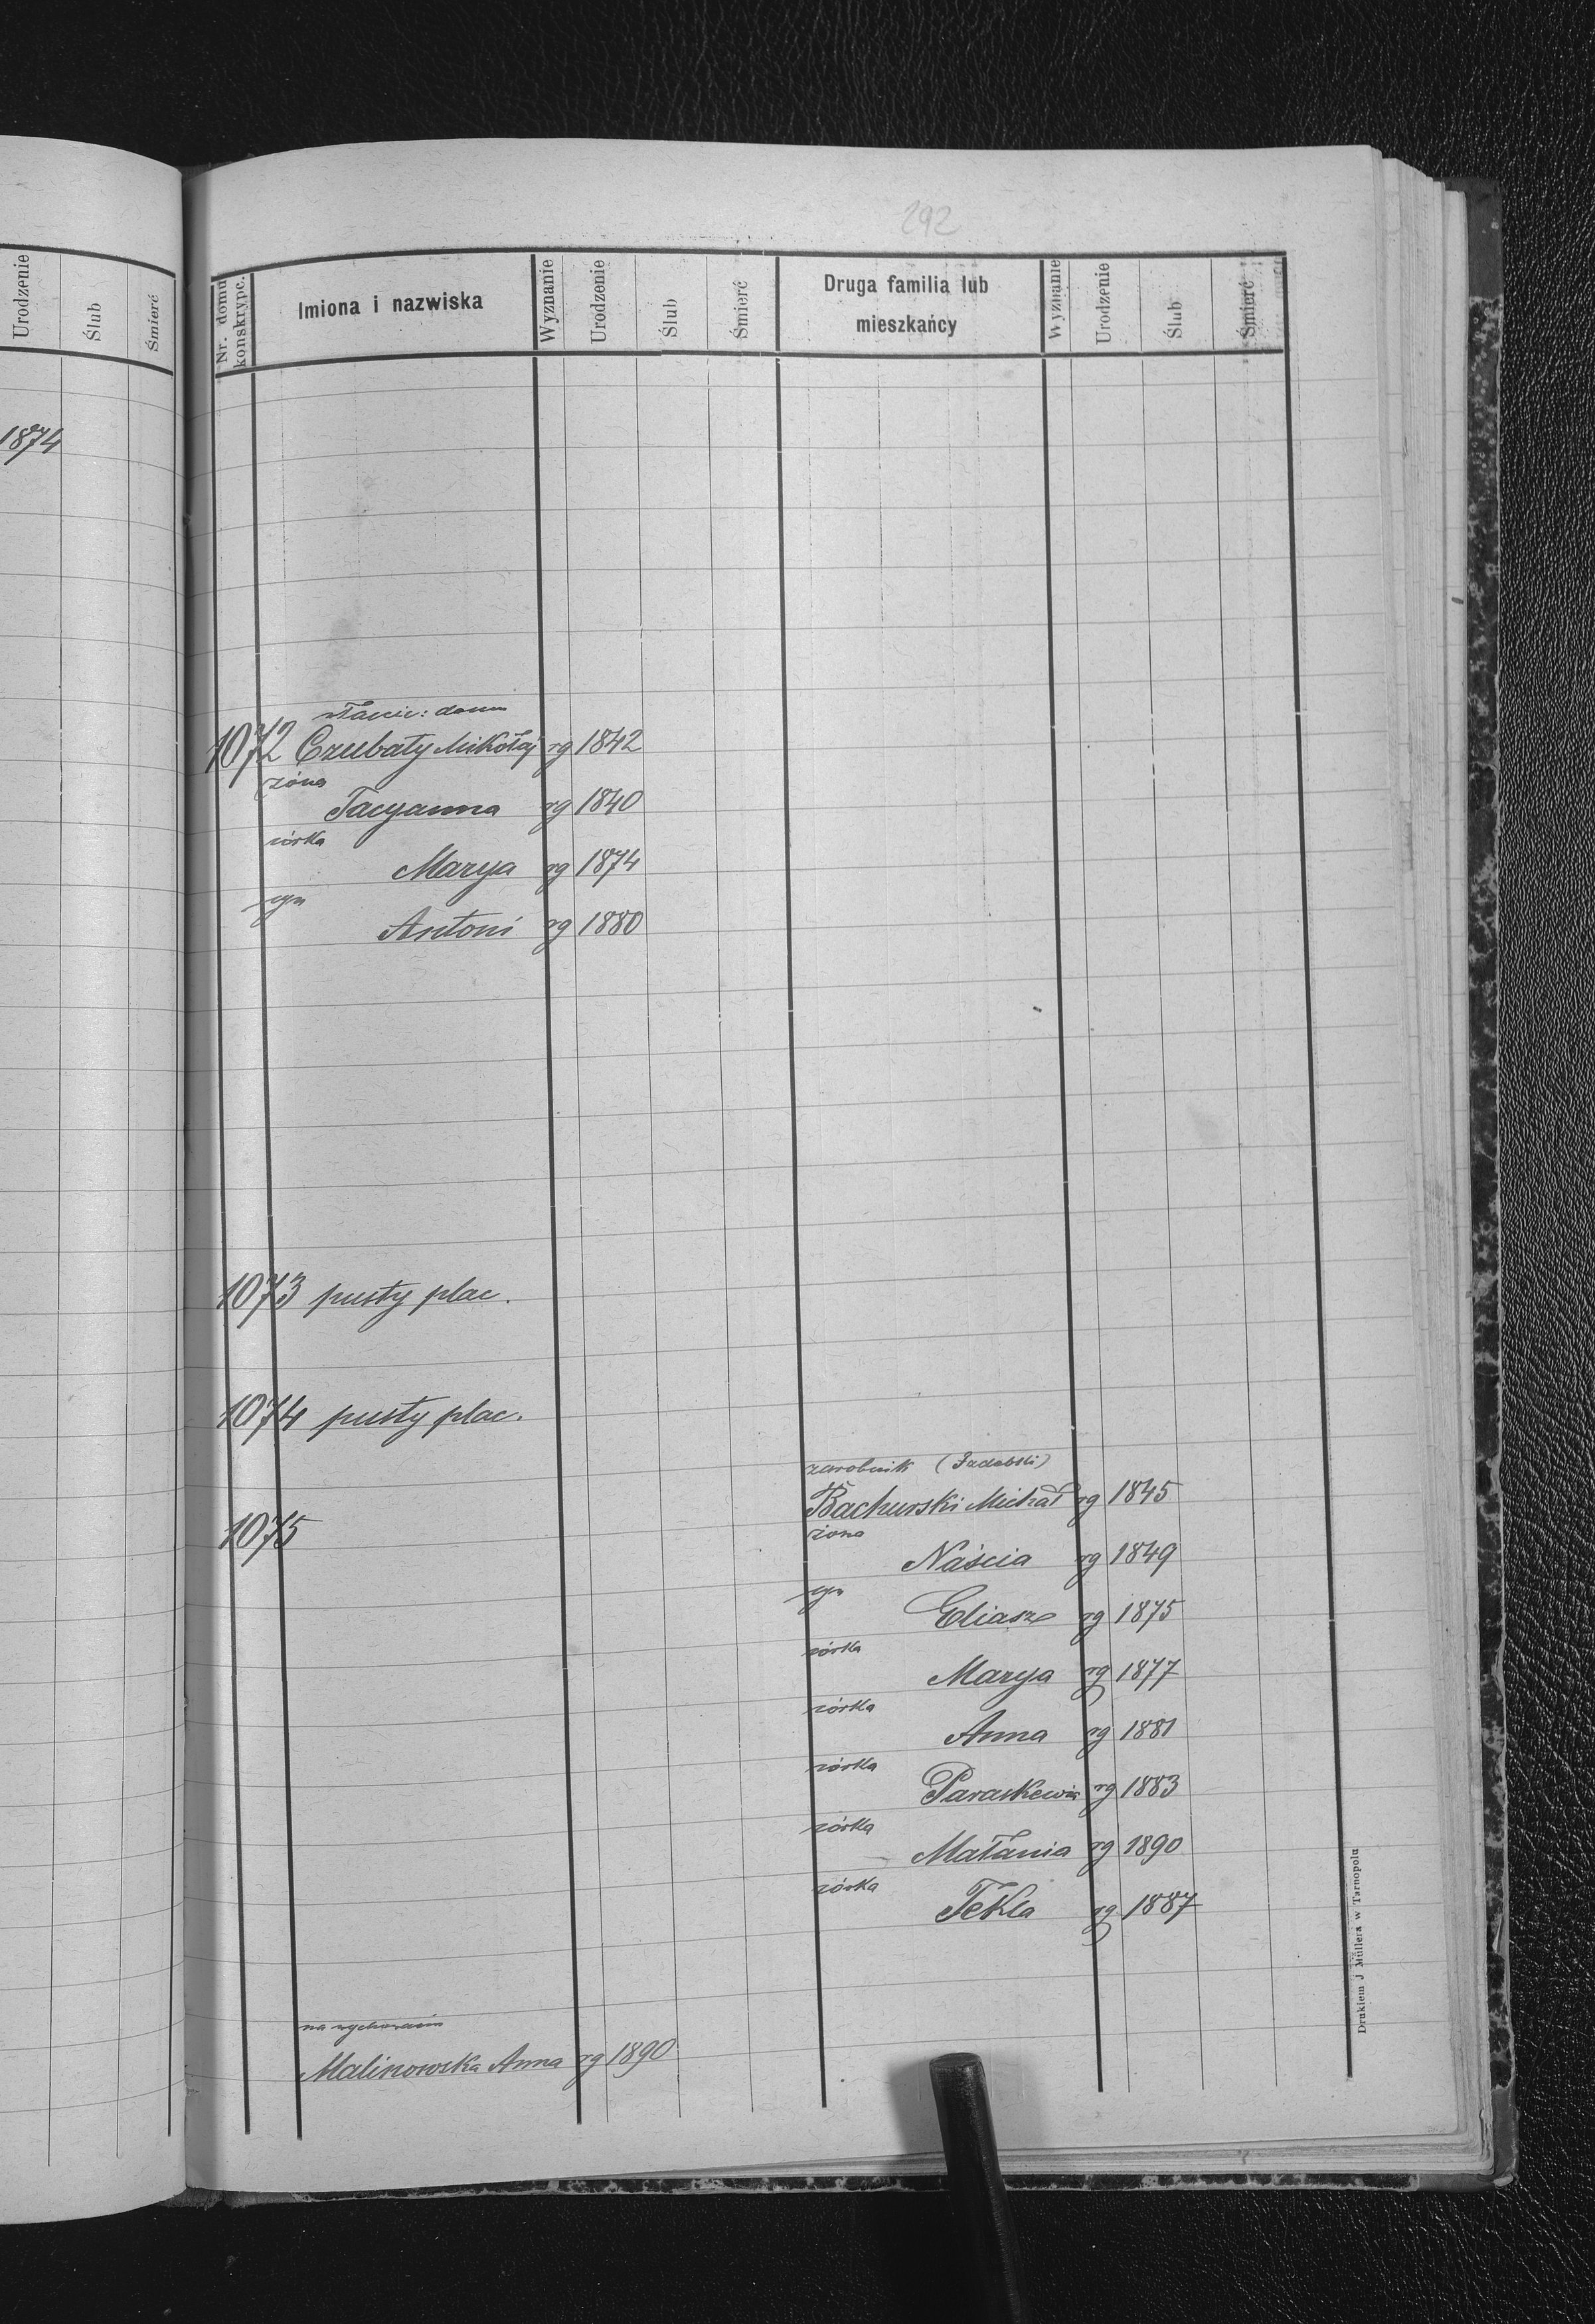 292
Urodzenie
Ślub
Śmierć
1874
Nr. domu konskrypc.
Imiona i nazwiska
Wyznanie
Urodzenie
Ślub
Śmierć
Druga familia lub mieszkańcy
Wyznanie
Urodzenie
Ślub
Śmierć
właścic: domu
1072 Czubaty Mikołaj rg 1842
żona
Tacyanna rg 1840
córka
Marya rg 1874
syn
Antoni rg 1880
1073 pusty plac.
1074 pusty plac.
zarobnik
1075 Bachurski Michał rg 1845
żona
Naścia rg 1849
syn
Eliasz rg 1875
córka
Marya rg 1877
córka
Anna rg 1881
córka
Paraskewia rg 1883
córka
Małania rg 1890
córka
Tekla rg 1887
na wychowaniu
Malinowska Anna rg 1890
Drukiem J Müllera w Tarnopolu